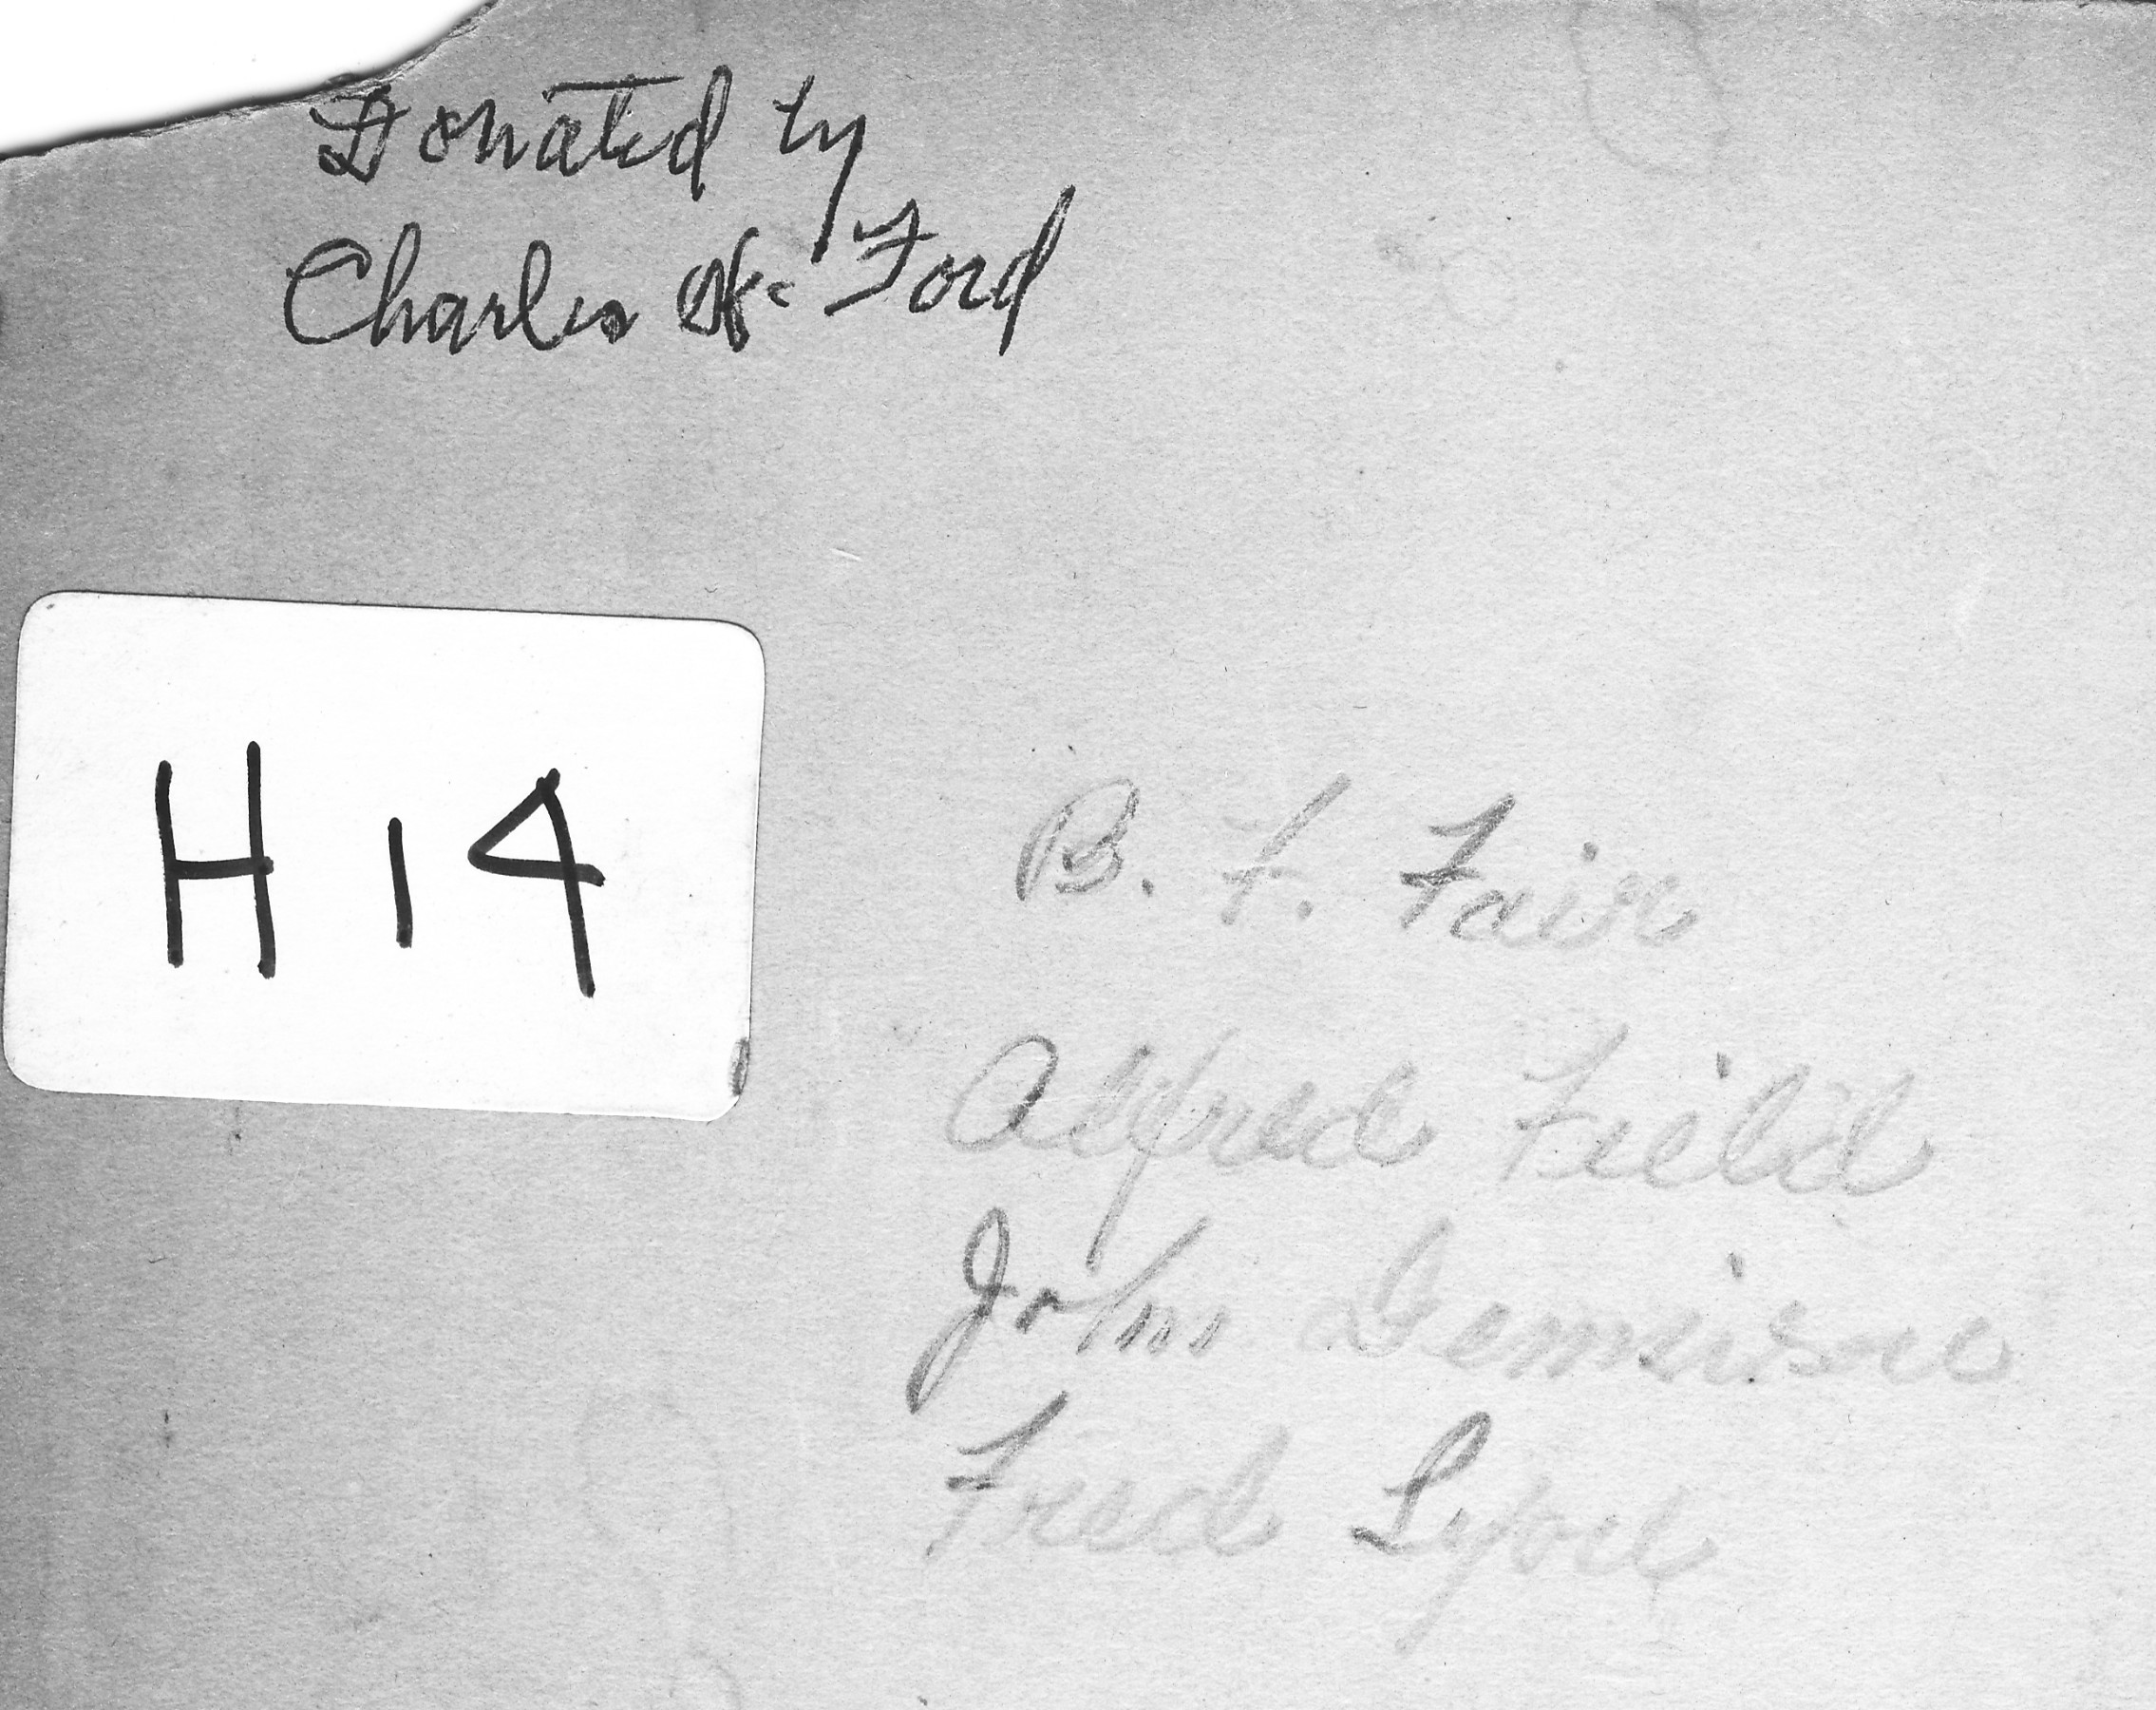 Donated by
Charles H. Ford
H 14
B. F. Fair
Alfred Field
John Dennison
Fred